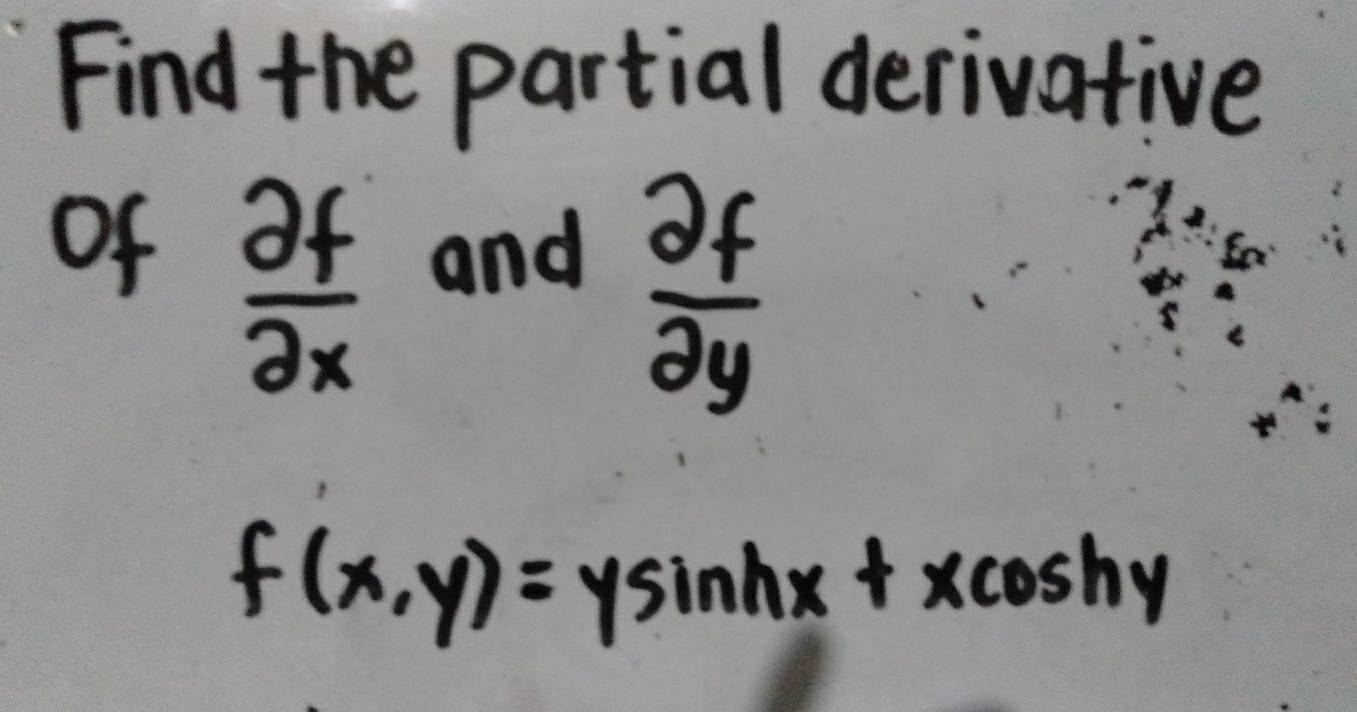 Find the partial derivative
of ∂f/∂x and ∂f/∂y
f(x,y) = ysinhx + xcoshy